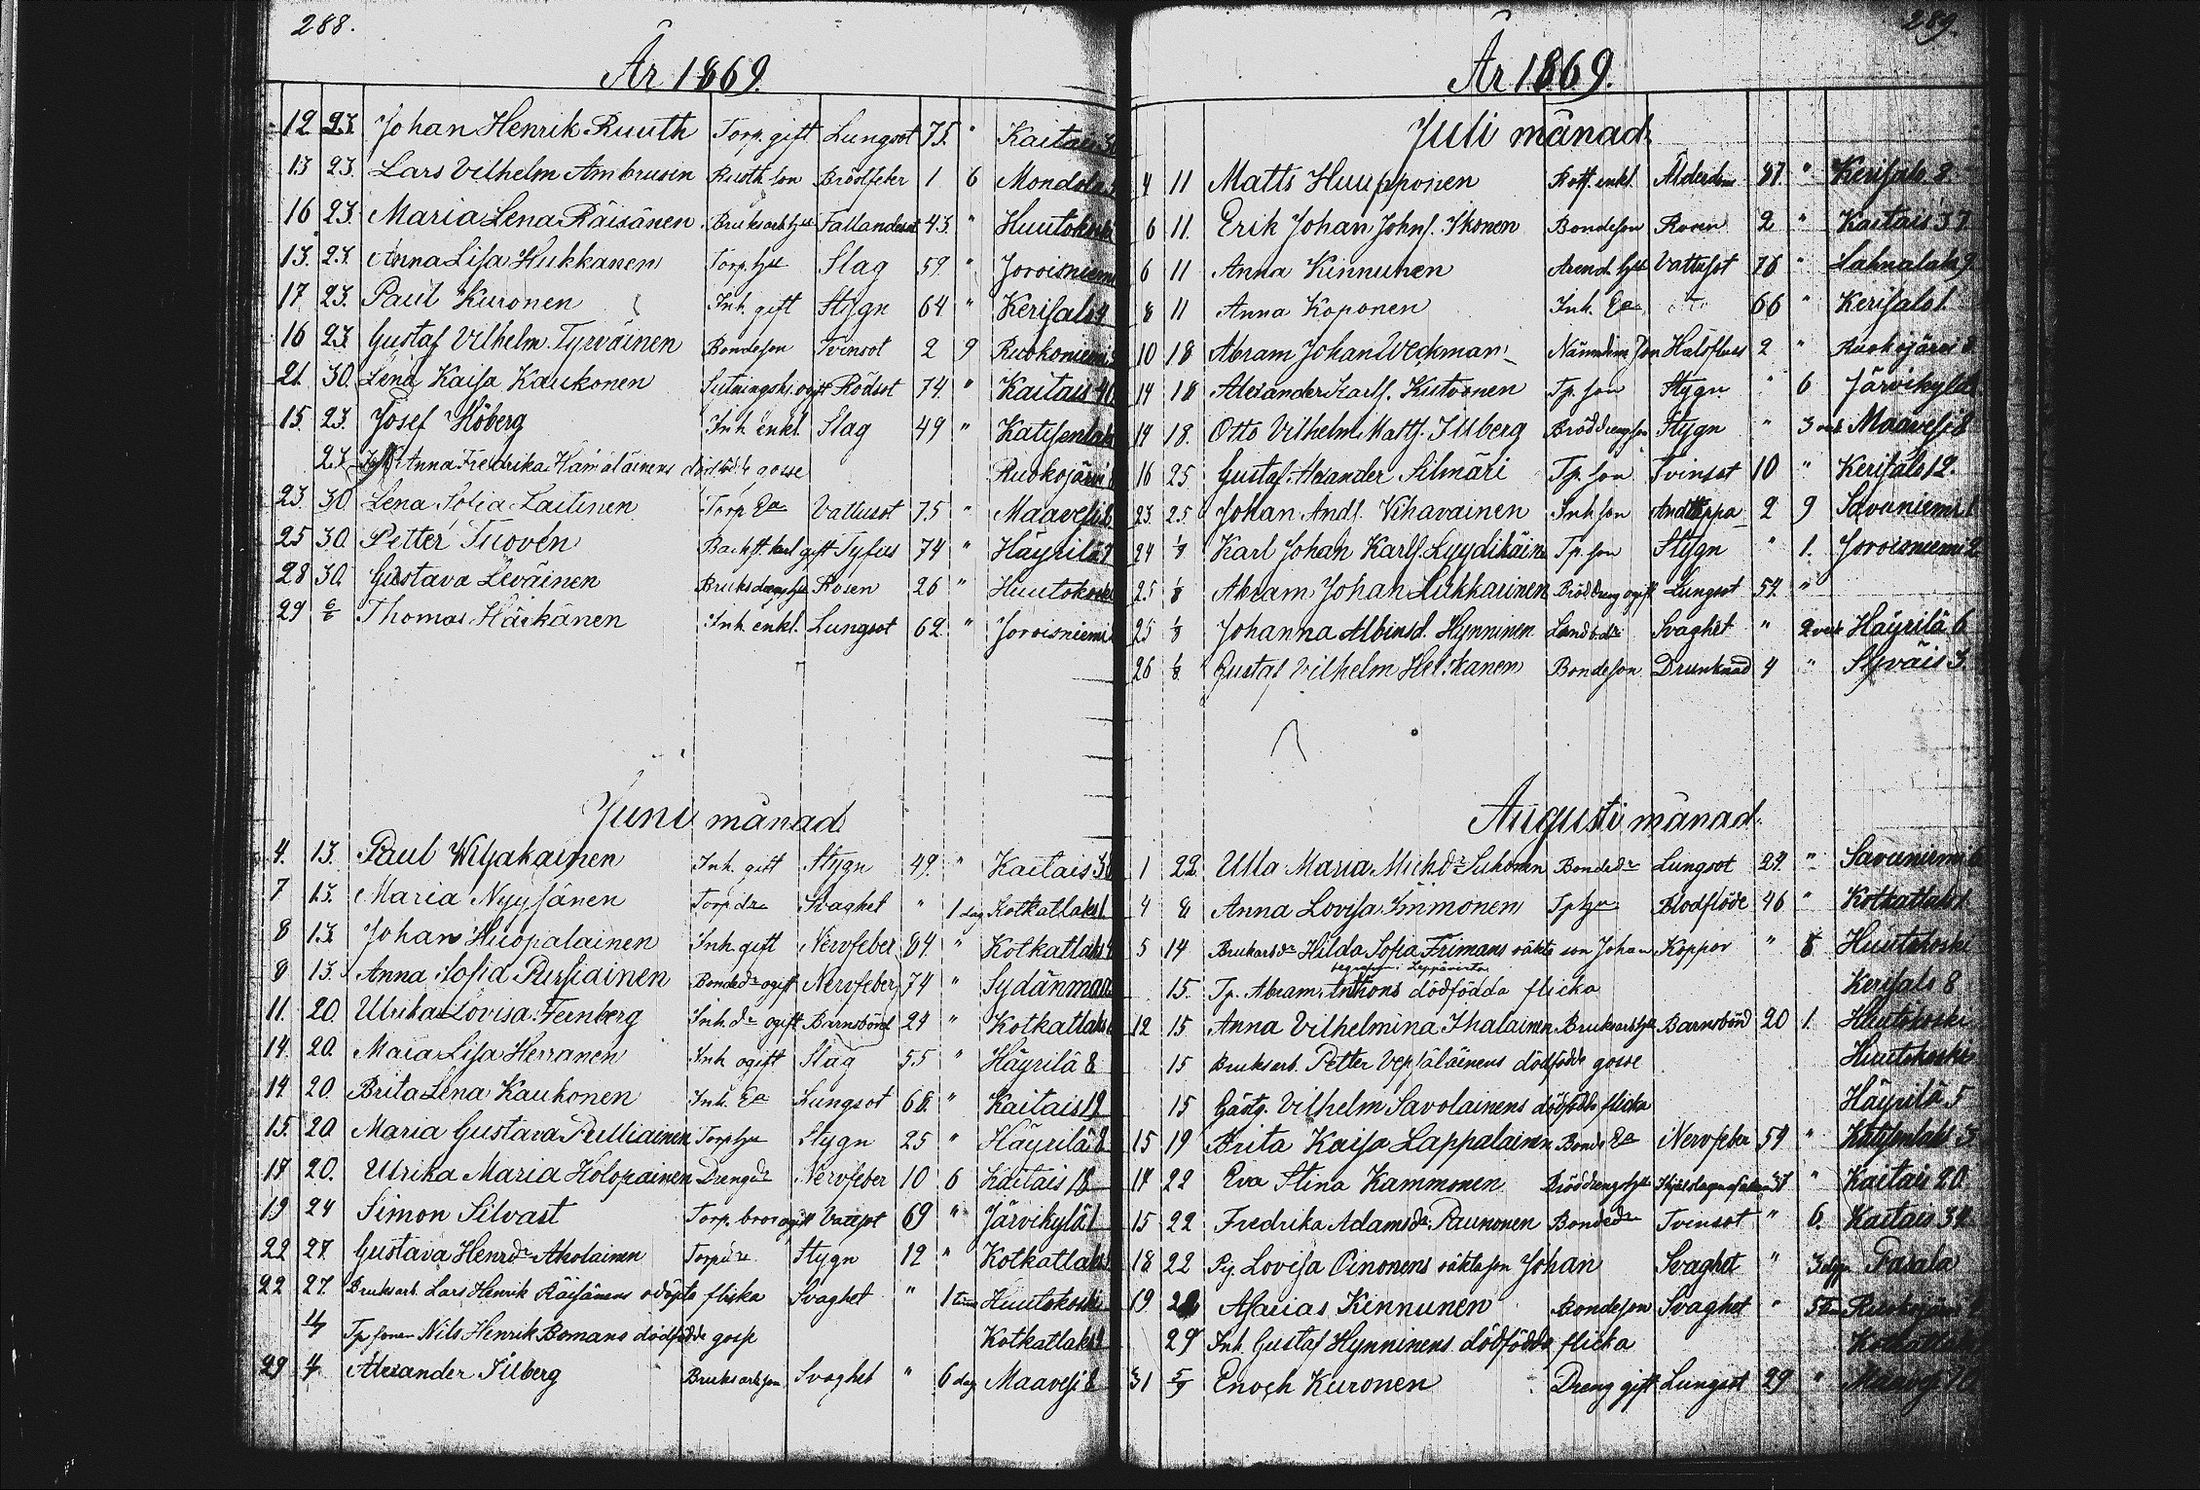 288.
År 1869.
12 23. Johan Henrik Ruuth Torp. gift Lungsot 75. " Kaitais
13 23. Lars Vilhelm Ambrusin son Bröstfeber 1 6 Mondola
16 23. Maria Lena Räisänen Fallandesot 43. " Huutokoski
13. 23. Anna Lisa Hukkanen Torp. hu Slag 59 " Joroisniemi
17 23. Paul Kuronen Inh. gift Stygn 64 " Kerisalo 9
16 23 Gustaf Vilhelm Tyrväinen Bondeson Tvinsot 2 9 Ruokoniemi
21. 30. Lena Kaisa Kaukonen ogift Rödsot 74. " Kaitais 40
15. 23. Josef Höberg Inh. enkl. Slag 49 " Katisenlaks
23. Anna Fredrika Hämäläinens dödfödde gosse Ruokojärvi
23. 30 Lena Sofia Laitinen Torp. Ea Vattusot 75 " Maavesi 8
25 30. Petter Tuoven gift Tyfus 74 " Häyrilä 7
28 30. Gustava Leväinen Rosen 26 " Huutokoski
29 6/6 Thomas Häikänen Inh. enkl. Lungsot 62 " Joroisniemi
Juni månad
4. 13. Paul Wiljakainen Inh. gift Stygn 49. " Kaitais 30
7 13. Maria Nyyssönen Torp. dr Svaghet " 1 dag Kotkatlaks 1
8 13. Johan Huopalainen Inh. gift Nervfeber 64. " Kotkatlaks
8 13. Anna Sofia Pursiainen Bonded:r ogift Nervfeber 74 " Sydänmaa
11. 20. Ulrika Lovisa Feinberg Inh. d:r ogift Barnsbörd 24 " Kotkatlaks
14. 20. Maia Lisa Herranen Inh. ogift Slag 55 " Häyrilä 8
14 20. Brita Lena Kaukonen Inh. Ea Lungsot 68. " Kaitais 19
15. 20. Maria Gustava Pulliainen Torp hu Stygn 25 " Häyrilä 8
18 20. Ulrika Maria Holopainen Drengd:r Nervfeber 10 6 Kaitais 18
19 24 Simon Silvast Torp. bror ogift Vattsot 69 " Järvikylä 1
22 27. Gustava Henrd:r Aholainen Torpd:r Stygn 12 " Kotkatlaks
22 27. Bruksarb. Lars Henrik Räisänens odöpta flicka Svaghet " 1 tim Huutokoski
4/7 Tp sonen Nils Henrik Bomans dödfödde gosse Kotkatlaks
29 4/7 Alexander Illberg Bruksarb son Svaghet " 6 dag Maavesi 8
289.
År 1869.
Juli månad
4 11 Matts Huupponen enkl. Ålderdom 87. " Kerisalo 2
6 11. Erik Johan Johns. Ikonen Bondeson Rosen 2 " Kaitais 37
6 11 Anna Kinnunen Arend. hu Vattusot 76 " Lahnalaks 9
8 11 Anna Koponen Inh. Ea 66 " Kerisalo 1.
10 18 Abram Johan Weckman Nämndem. son Halsfluss 2 " Ruokojärvi 8
14 18 Alexander Karls. Kutvonen Tp. son Stygn " 6 Järvikylä
14 18. Otto Vilhelm Matts. Illberg Stygn " 3 Maavesi 8
16 25 Gustaf Alexander Silmäri Tp. son Tvinsot 10 " Kerisalo 12.
23. 25. Johan Ands. Vihavainen Inh son Andtäppa 2 9 Savuniemi 1
24 1/8 Karl Johan Karls. Lyydikäin Tp. son Stygn " 1. Joroisniemi 2
25 1/8 Abram Johan Hukkarinen ogift Lungsot 54. "
25 1/8 Johanna Albinsd. Hynninen Landb.d:r Svaghet " 2 veck Häyrilä 6
26 1/8 Gustaf Vilhelm Heiskanen Bondeson Drunknad 4 " Syväis 3.
Augusti månad.
1 22. Ulla Maria Michd:r Suhonen Bonded:r Lungsot 29. " Savuniemi 6
4 8. Anna Lovisa Immonen Tp hu Blodflöde 46 " Kotkatlaks
5 14 Hilda Sofia Frimans oäkta son Johan Koppor " 8 Huutokoski
begrafven i Leppävirta
15. Tp. Abram Antikons dödfödda flicka Kerisalo 8
12 15 Anna Vilhelmina Ihalainen Bruksarb hu Barnsbörd 20 1. Huutokoski
15 Bruksarb. Petter Vepsäläinens dödfödde gosse Huutokoski
15 Gästg. Vilhelm Savolainens dödfödda flicka Häyrilä 5
15 19 Brita Kaisa Lappalainen Bonde Ea Nervfeber 54 " Katisenlaks 5
17 22 Eva Stina Kammonen 37 " Kaitais 20
15 22 Fredrika Adamsd:r Paunonen Bonded:r Tvinsot " 6. Kaitais 34
18 22 Pig. Lovisa Oinonens oäkta son Johan Svaghet " 3 dgr Pasala
19 22 Asarias Kinnunen Bondeson Svaghet " 5 Ruokojärvi
29 Inh. Gustaf Hynninens dödfödda flicka Kotkatlaks
31 5/9 Enoch Kuronen Dreng gift Lungsot 29 " Maavesi